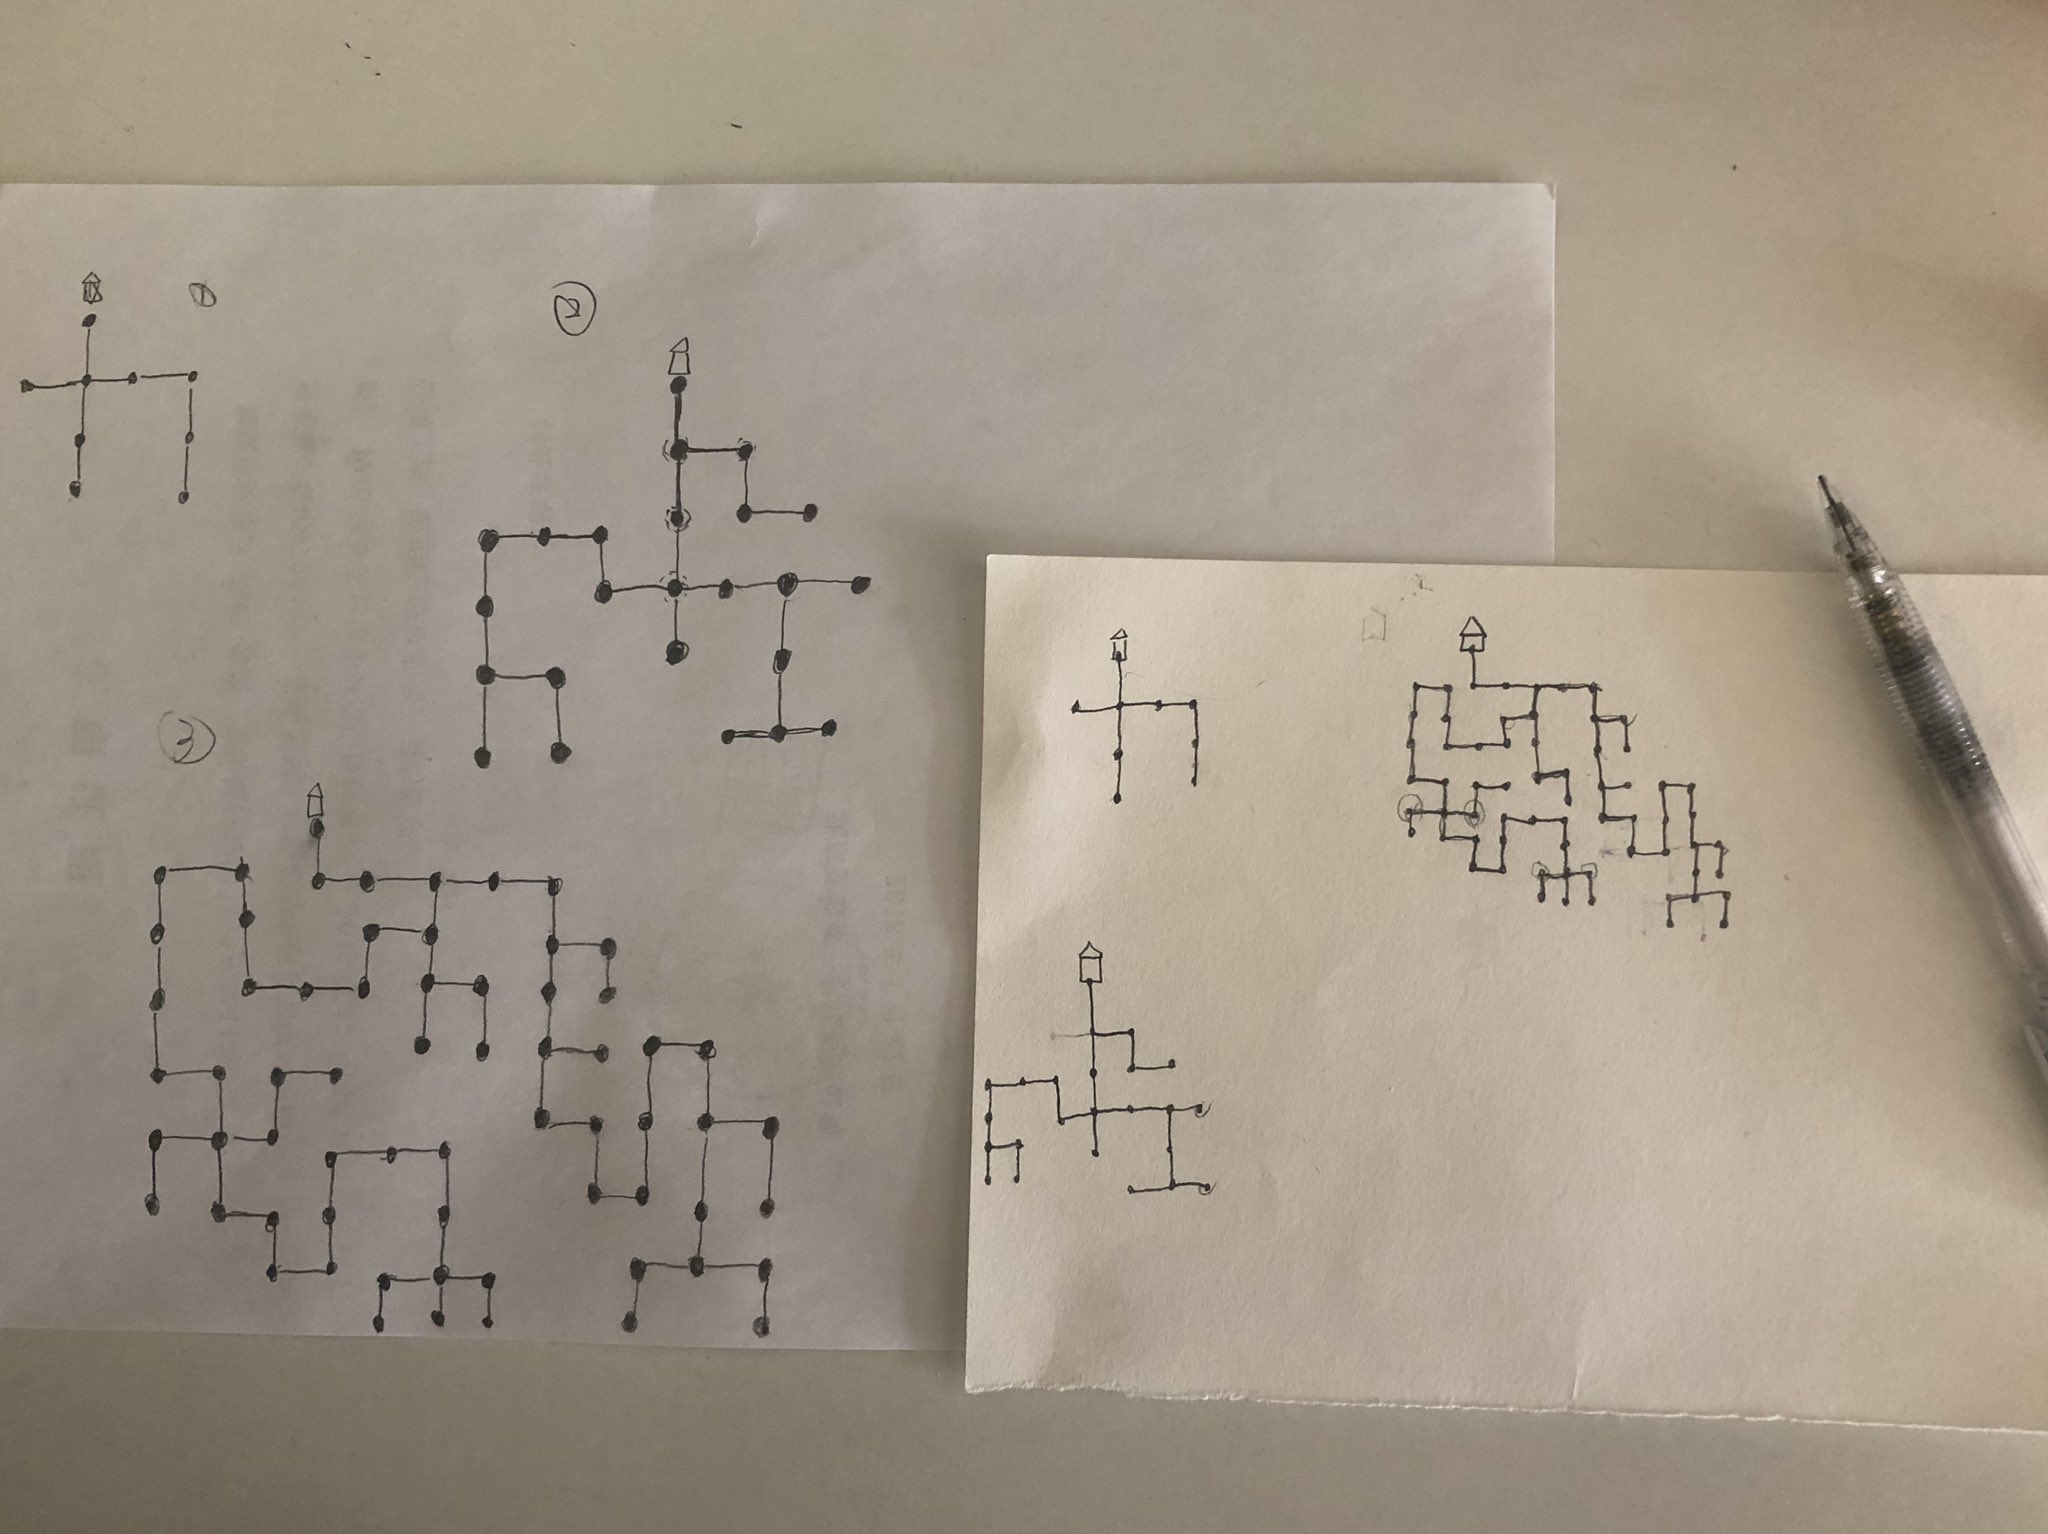 ①
②
③